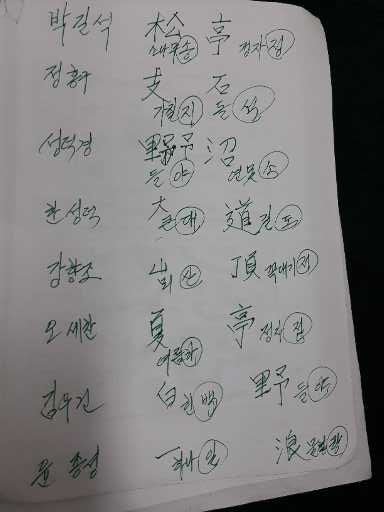 박길석 松 亭
소나무송 정자정
정홍구 支 石
가릴지 돌석
성덕경 野 沼
들야 연못소
한성덕 大 道
큰대 길도
강향조 山 頂
뫼산 꼭대기정
오세찬 夏 亭
여름하 정자정
김우건 白 野
흰백 들야
윤종성 一 浪
하나일 물결랑